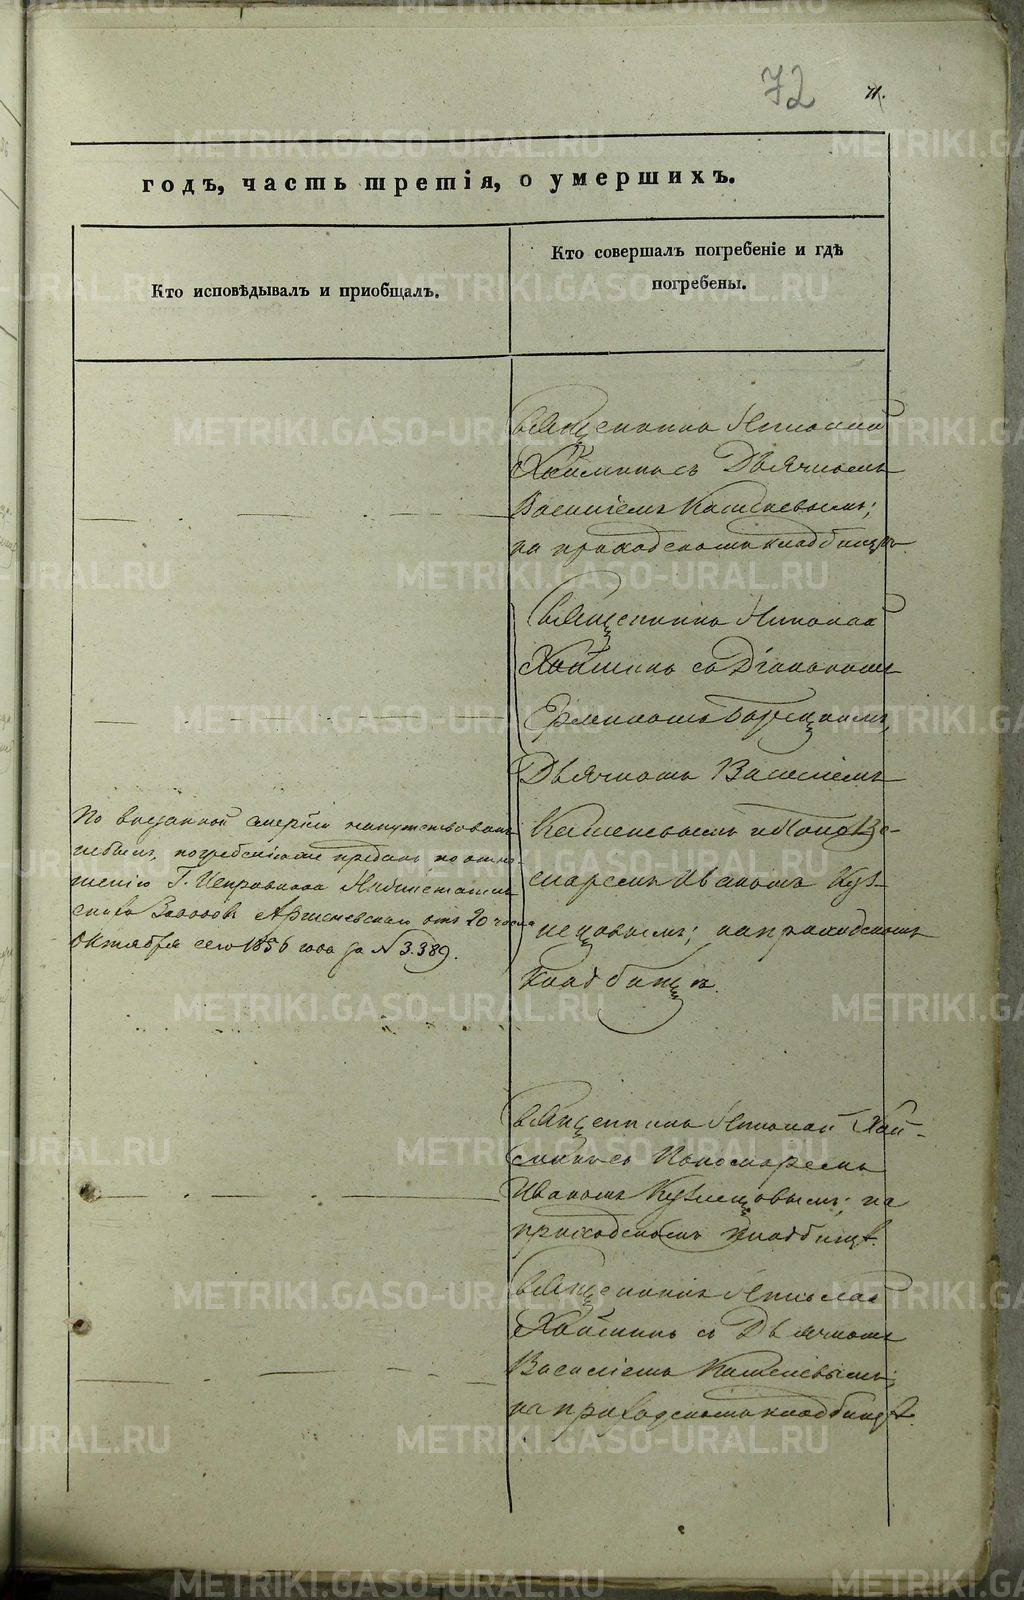 72
71.
годъ, часть третія, о умершихъ.
Кто исповѣдывалъ и приобщалъ.
Кто совершалъ погребеніе и гдѣ
погребены.
Священникъ Николай
Хайминъ съ Дьячкомъ
Василіемъ
на приходскомъ кладбищѣ.
Священникъ Николай
Хайминъ съ Діакономъ
Дьячкомъ Василіемъ
и Поно-
маремъ Иваномъ Куз-
нецовымъ; на приходскомъ
кладбищѣ.
По внезапной смерти напутствованъ
небылъ, погребенію преданъ по отно-
шенію Г. Исправника
заводовъ отъ 20 числа
Октября сего 1856 года за № 3.389.
Священникъ Николай Хай-
минъ съ Пономаремъ
Иваномъ Кузнецовымъ; на
приходскомъ кладбищѣ.
Священникъ Николай
Хайминъ съ Дьячкомъ
Василіемъ
на приходскомъ кладбищѣ.
METRIKI.GASO-URAL.RU